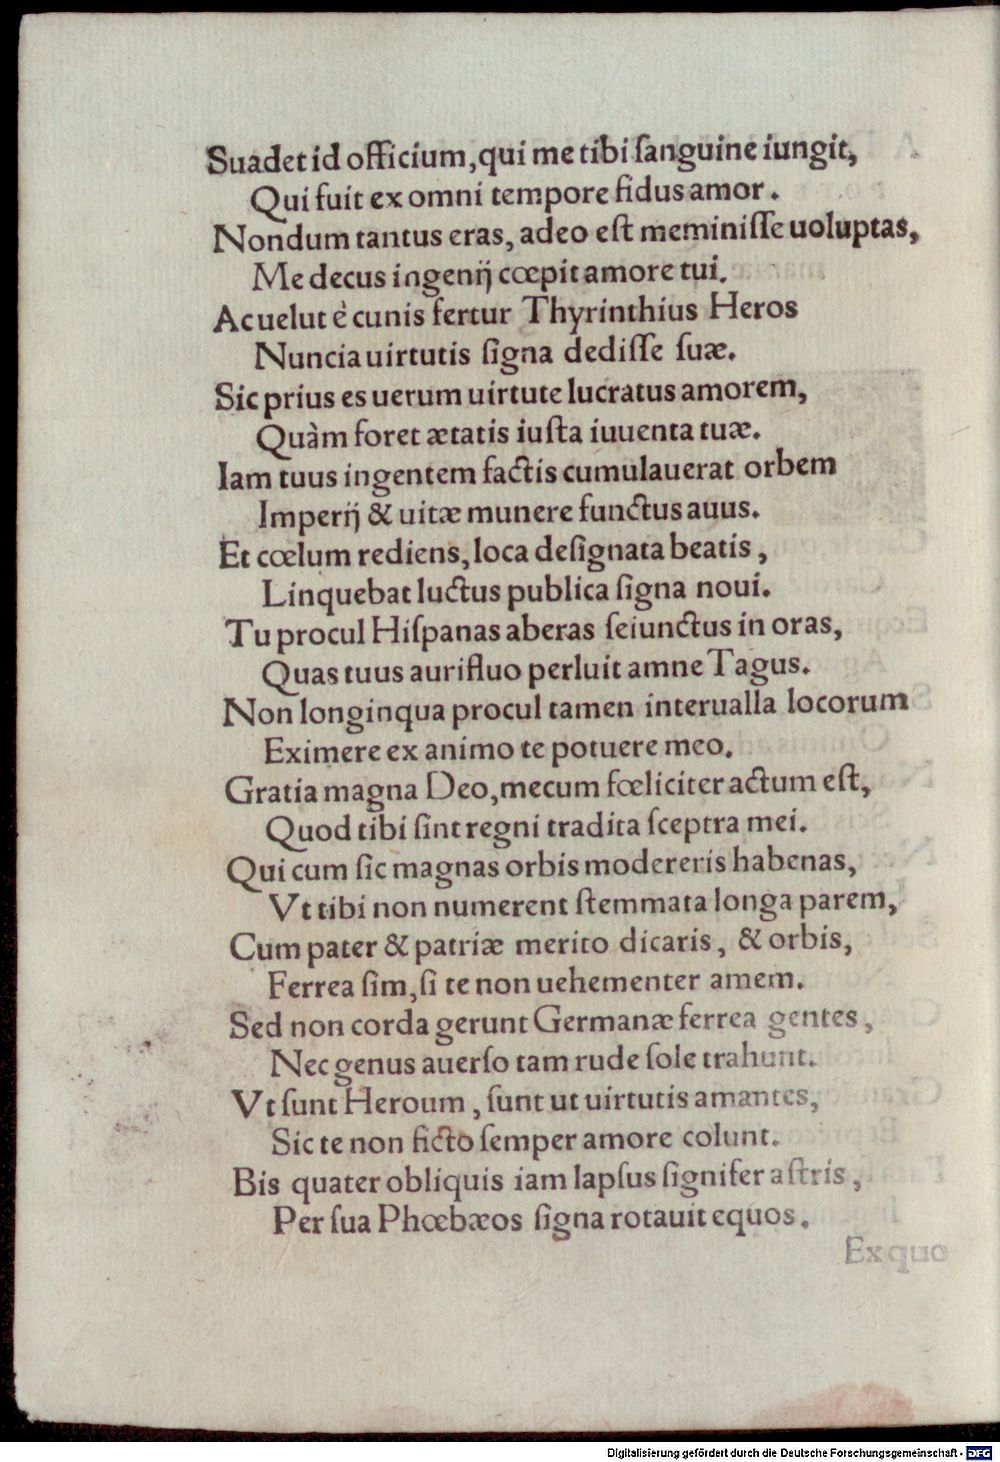 Suadet id officium, qui me tibi ſanguine iungit,
Qui fuit ex omni tempore fidus amor.
Nondum tantus eras, adeo eſt meminiſſe uoluptas,
Me decus ingenij cœpit amore tui.
Ac uelut è cunis fertur Thyrinthius Heros
Nuncia uirtutis ſigna dediſſe ſuæ.
Sic prius es uerum uirtute lucratus amorem,
Quàm foret ætatis iuſta iuuenta tuæ.
Iam tuus ingentem factis cumulauerat orbem
Imperij & uitæ munere functus auus.
Et cœlum rediens, loca deſignata beatis,
Linquebat luctus publica ſigna noui.
Tu procul Hiſpanas aberas ſeiunctus in oras,
Quas tuus aurifluo perluit amne Tagus.
Non longinqua procul tamen interualla locorum
Eximere ex animo te potuere meo.
Gratia magna Deo, mecum fœliciter actum eſt,
Quod tibi ſint regni tradita ſceptra mei.
Qui cum ſic magnas orbis modereris habenas,
Vt tibi non numerent ſtemmata longa parem,
Cum pater & patriæ merito dicaris, & orbis,
Ferrea ſim, ſi te non uehementer amem.
Sed non corda gerunt Germanæ ferrea gentes,
Nec genus auerſo tam rude ſole trahunt.
Vt ſunt Heroum, ſunt ut uirtutis amantes,
Sic te non ficto ſemper amore colunt.
Bis quater obliquis iam lapſus ſignifer aſtris,
Per ſua Phœbæos ſigna rotauit equos.
Ex quo
Digitalisierung gefördert durch die Deutsche Forschungsgemeinschaft - DFG